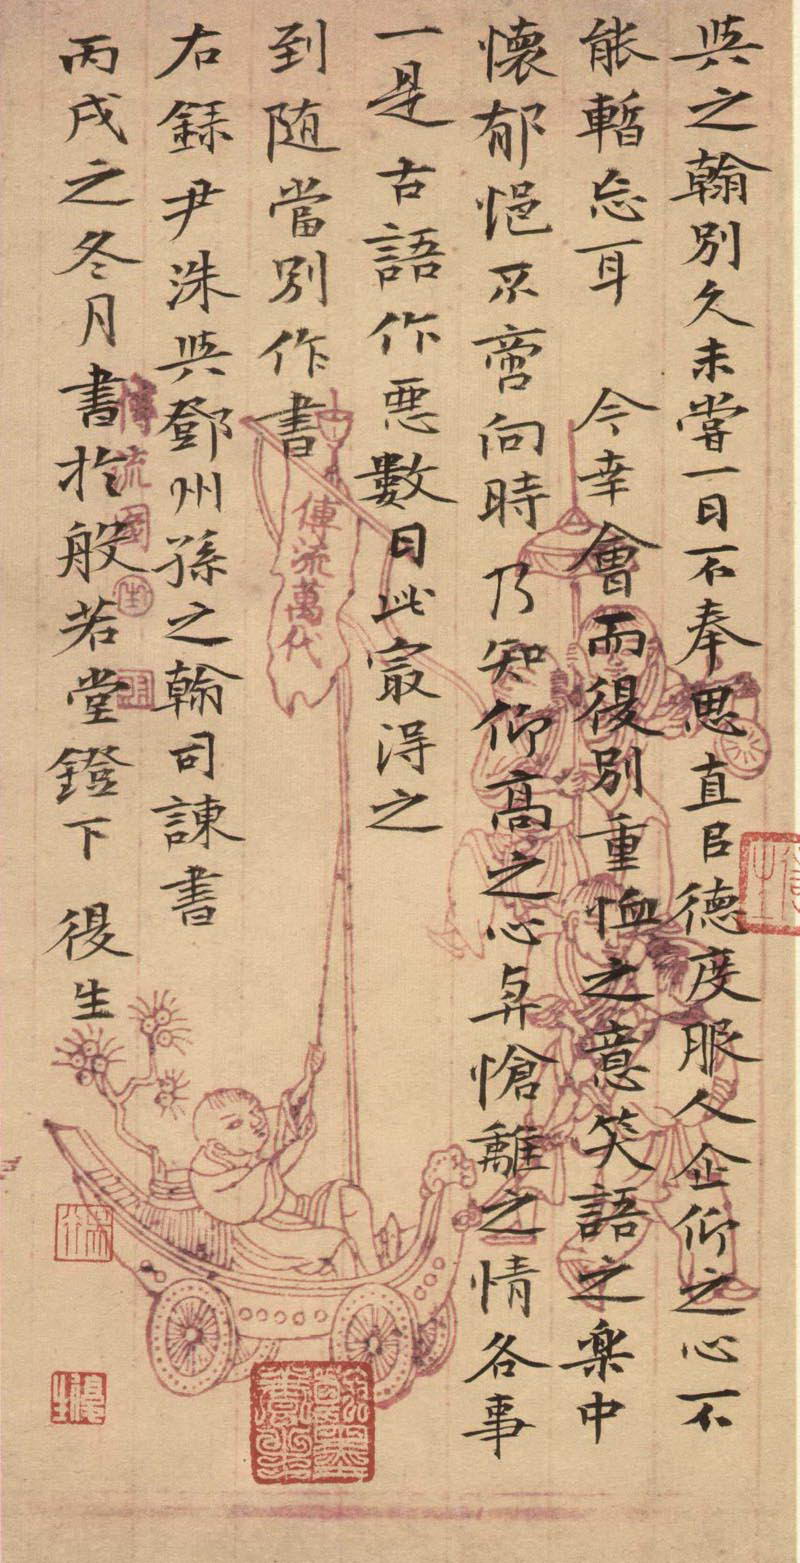 與之翰別久未嘗一日不奉思直臣德度服人企仰之心不
能暫忘耳 今幸會而復別重恤之意笑語之樂中
懷郁悒不啻向時乃知仰高之心與愴離之情各事
一是古語作惡數日此冣得之
到随當別作書
右録尹洙與鄧州孫之翰司諫書
丙戌之冬月書扵般若堂鐙下 復生
傳流萬代